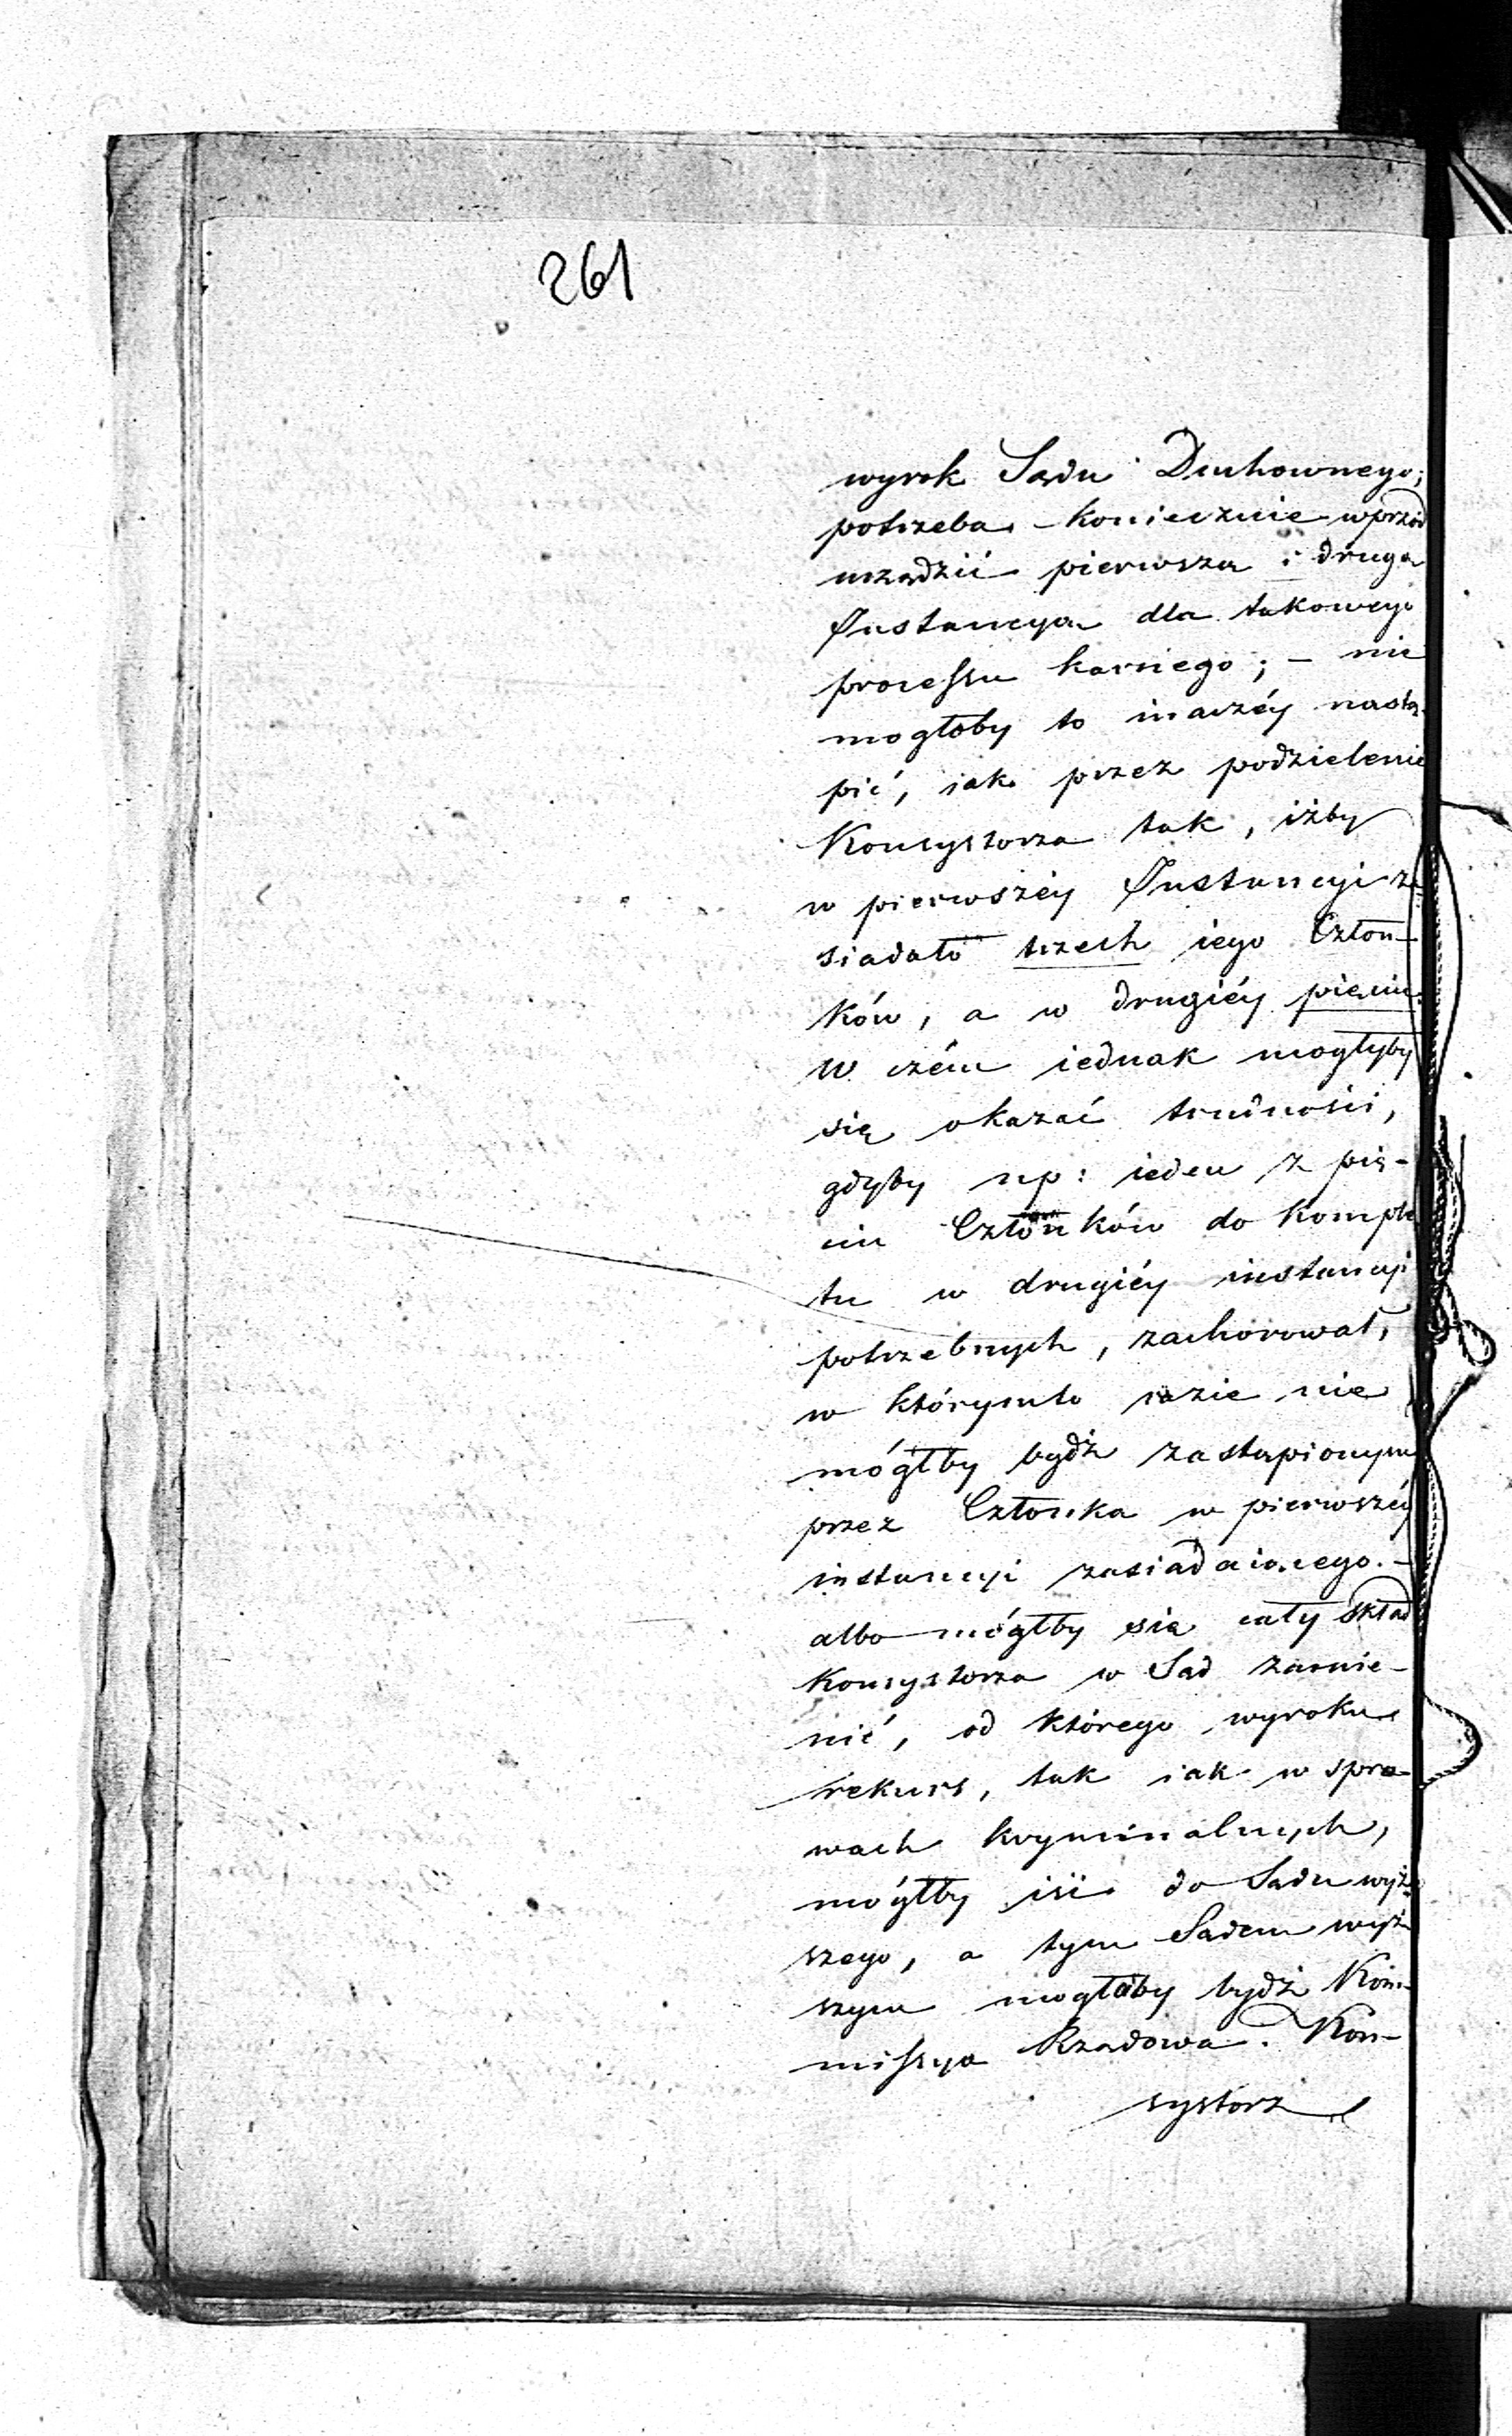 261
wyrok Sądu Duchownego;
potrzeba koniecznie wprzód
urządzić pierwszą i drugą
Instancyą dla takowego
processu karnego; – nie
mogłoby to inaczéy nastą-
pić, iak przez podzielenie
Konsystorza tak, iżby
w pierwszéy Instancyi za-
siadało trzech iego Człon-
ków, a w drugiéy pięciu.
W czém iednak mogłyby
się okazać trudności,
gdyby np: ieden z pię-
ciu Członków do komple
tu w drugiéy instancyi
potrzebnych, zachorował,
w którymto razie nie
mógłby bydź zastąpionym
przez Członka w pierwszéy
instancyi zasiadaiącego. –
albo mógłby się cały skład
Konsystorza w Sąd zamie-
nić, od którego wyroku
rekurs, tak iak w spra-
wach kryminalnych,
mógłby iść do Sądu wyż-
szego, a tym Sądem wyż-
szym mogłaby bydź Kom-
missya Rządowa. Kon-
systorz